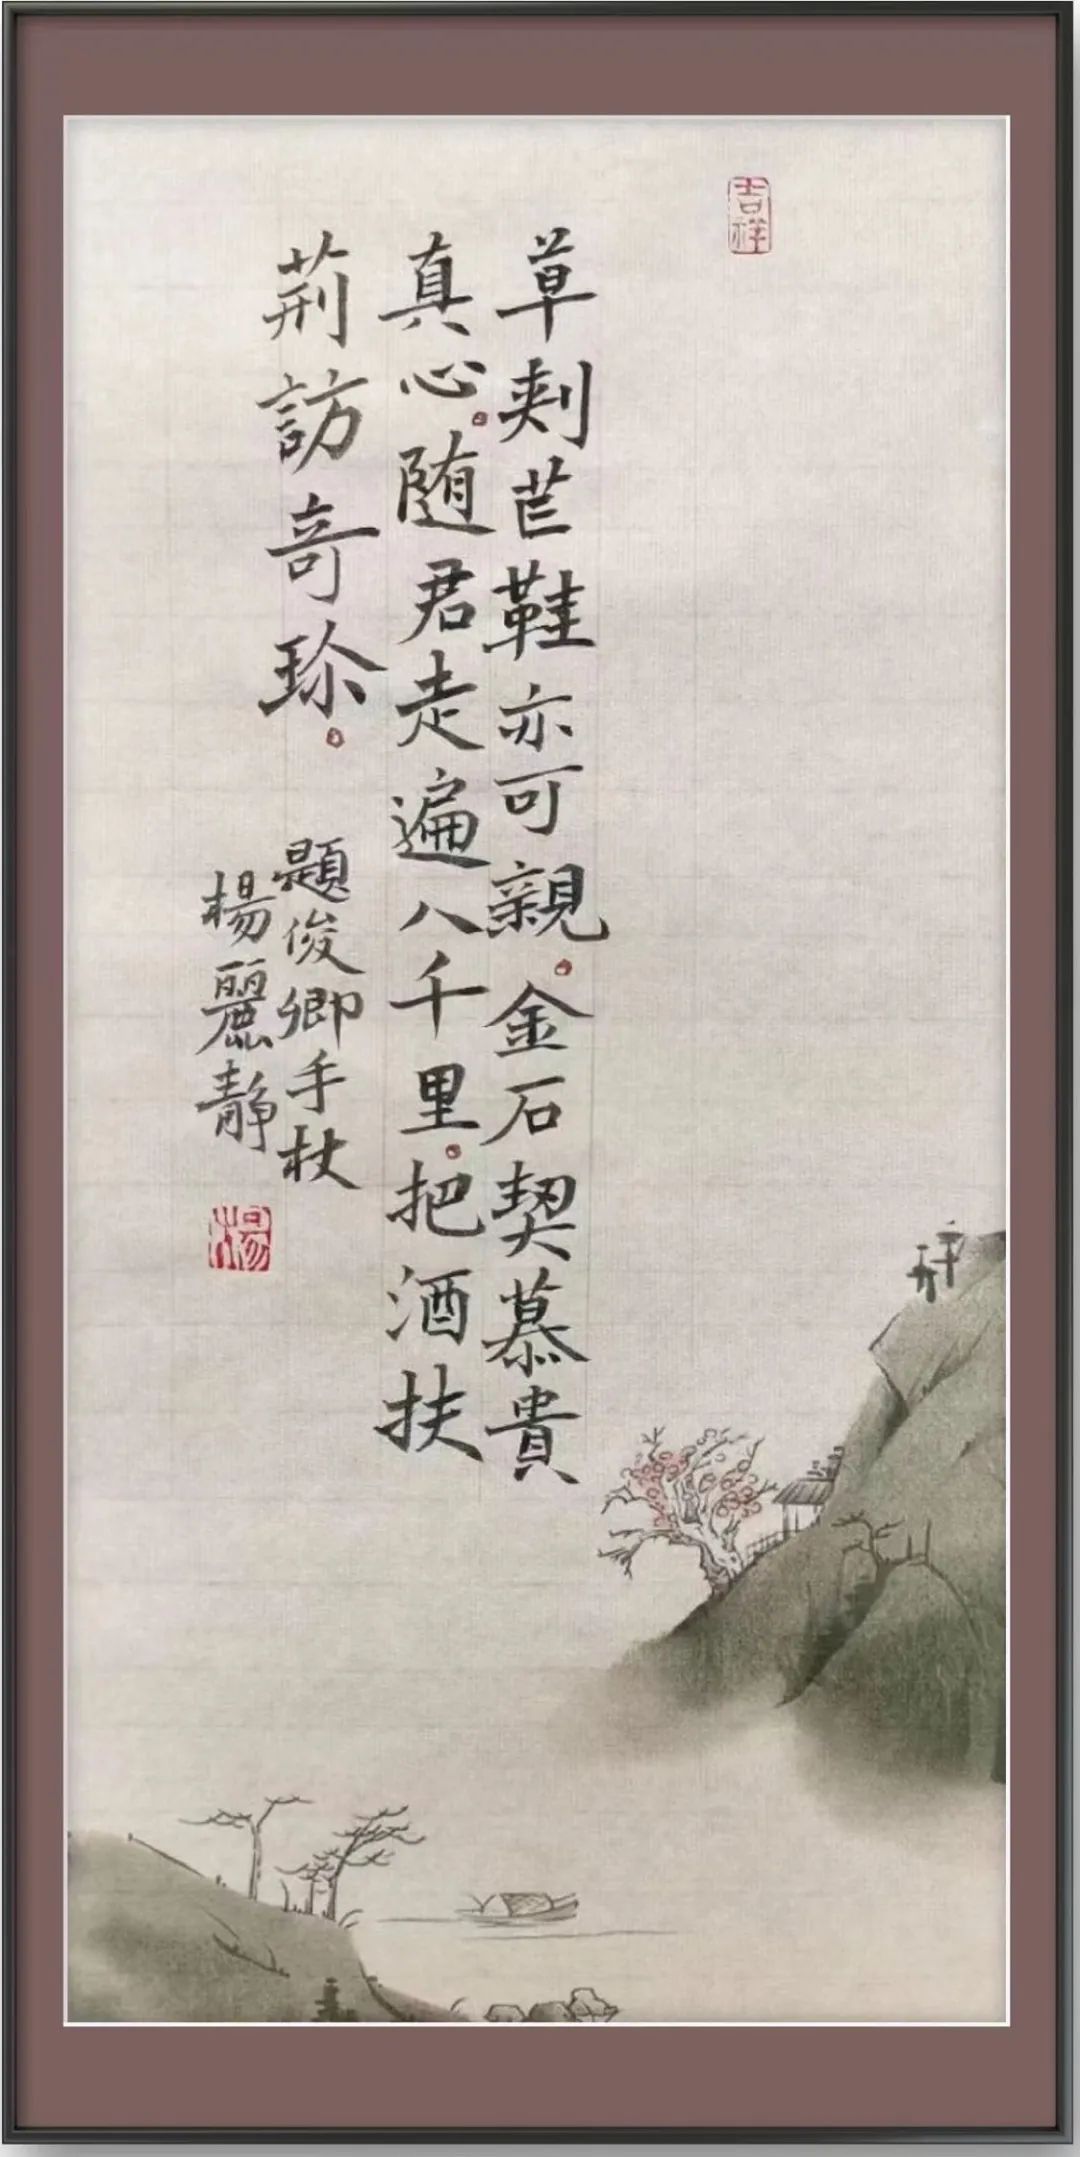 吉祥
草刾芒鞋亦可親。金石契慕貴
真心。随君走遍八千里。把酒扶
荊訪竒珎。
題俊卿手杖
楊麗静
楊